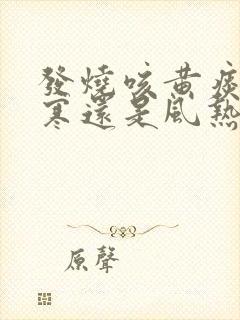 發燒咳黃痰
寒還是風熱
原聲